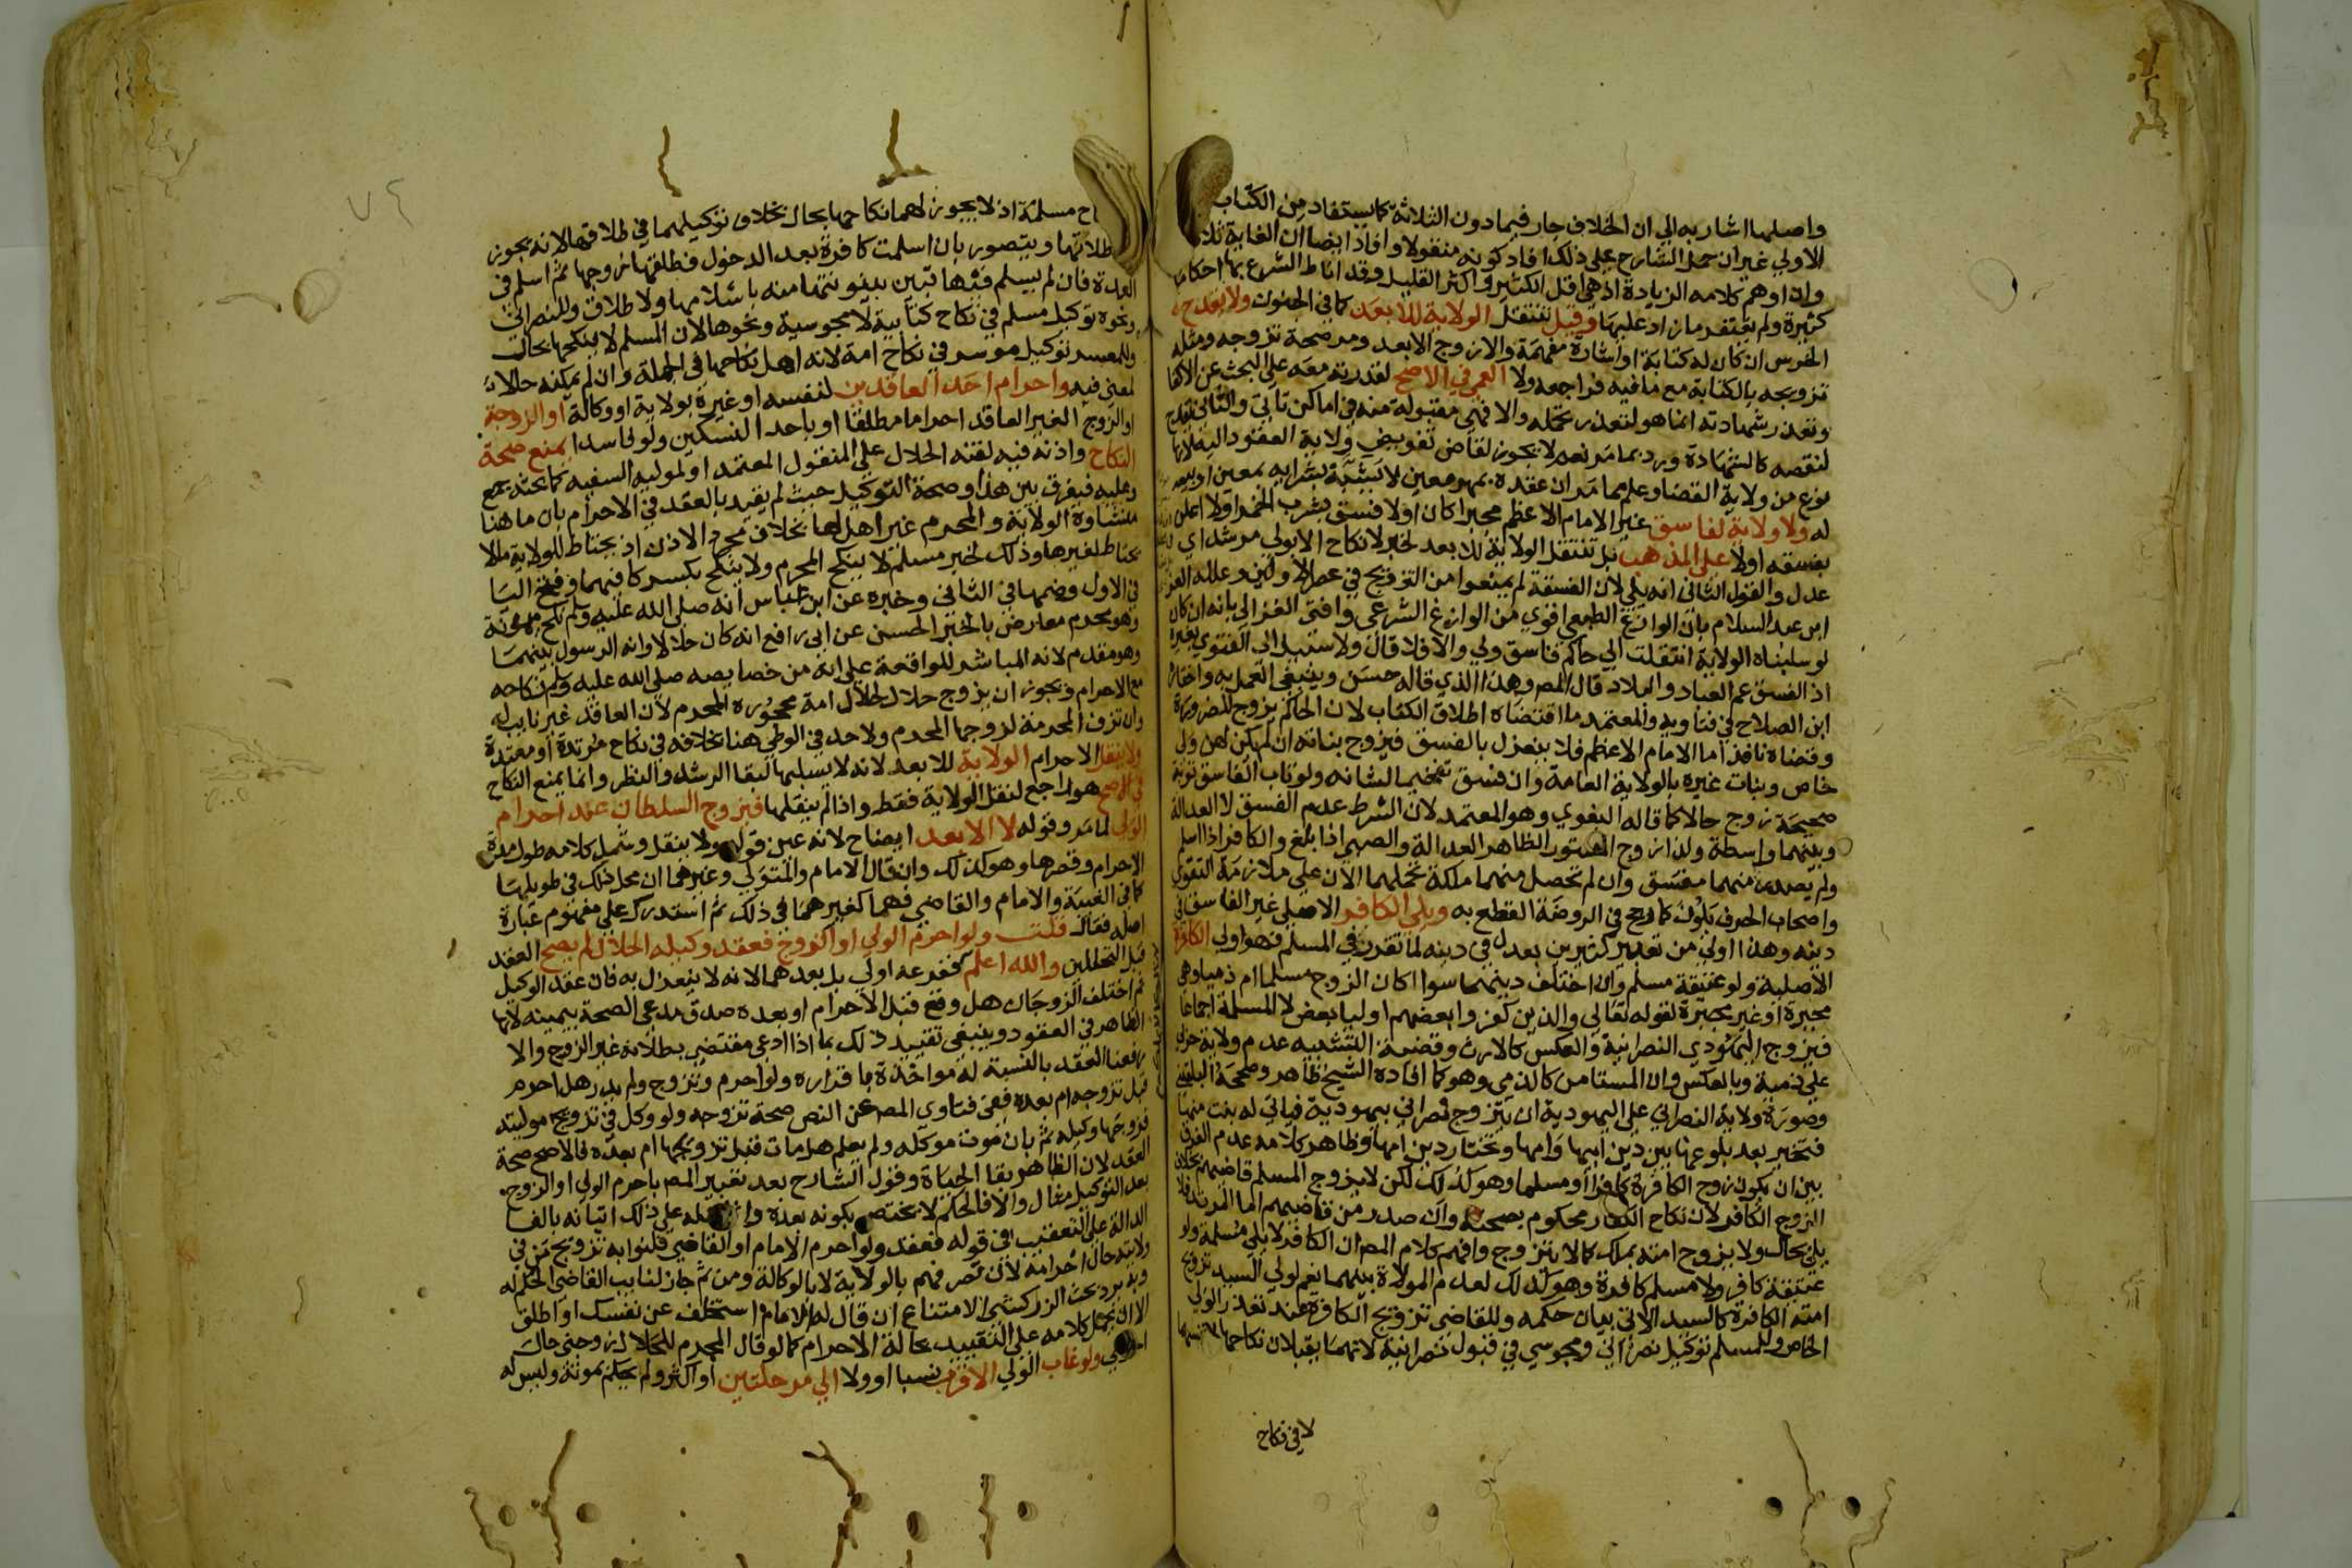 واصلها اشار به الي ان الخلاف جار فيما دون الثلاثة كما يستفاد من الكتاب
الاولي غير ان حمل الشارح علي ذلك افاد كونه منقولا وافاد ايضا ان الغاية ثلاث
وان اوهم كلامه الزيادة اذ هي اقل الكثير واكثر القليل وقد اناط الشرع بها احكاما
كثيرة ولم يغتفر ما زاد عليها وقيل تنتقل الولاية للابعد كما في الجنون ولا يقدح
الخرس ان كان له كتابة او اشارة مفهمة والا زوج الابعد ومر صحة تزوجه ومثله
تزويجه بالكتابة مع ما فيه فراجعه ولا العمي في الاصح لقدرته معه علي البحث عن الاكفا
وتعذر شهادته انما هو لتعذر تحمله والا فهي مقبولة منه في اماكن تاتي والثاني يقدح
لنقصه كالشهادة ويرد بما مر نعم لا يجوز لقاض تفويض ولاية العقود اليه لانها
نوع من ولاية القضا وعلم مما مر ان عقده بمهر معين لا يشبه شرايه بمعين او بيعه
له ولا ولاية لفاسق غير الامام الاعظم مجبرا كان اولا فسق بشرب الخمر اولا اعلن
بفسقه اولا علي المذهب بل تنتقل الولاية للابعد لخبر لا نكاح الا بولي مرشد اي
عدل والقول الثاني انه يلي لان الفسقة لم يمنعوا من التزويج في عصر الاولين وعلله العز
ابن عبد السلام بان الوازع الطبعي اقوي من الوازع الشرعي وافتي الغزالي بانه ان كان
لو سلبناه الولاية انتقلت الي حاكم فاسق ولي والا فلا قال ولا سبيل الي الفتوي بغيره
اذ الفسق عم العباد والبلاد قال المص وهذا الذي قاله حسن وينبغي العمل به واختاره
ابن الصلاح في فتاويه والمعتمد ما اقتضاه اطلاق الكتاب لان الحاكم يزوج للضرورة
وقضاه نافذ اما الامام الاعظم فلا ينعزل بالفسق فيزوج بناته ان لم يكن لهن ولي
خاص وبنات غيره بالولاية العامة وان فسق تفخيما لشانه ولو تاب الفاسق توبة
صحيحة زوج حالا كما قاله البغوي وهو المعتمد لان الشرط عدم الفسق لا العدالة
وبينهما واسطة ولذا زوج المستور الظاهر العدالة والصبي اذا بلغ والكافر اذا اسلم
ولم يصدر منهما مفسق وان لم تحصل منهما ملكة تحملهما الان علي ملازمة التقوي
واصحاب الحرف يلون كما رجح في الروضة القطع به ويلي الكافر الاصلي غير الفاسق في
دينه وهذا اولي من تعبير كثيرين بعدل في دينه لما تقرر في المسلم فهو اولي الكافرة
الاصلية ولو عتيقة مسلم وان اختلف دينهما سوا اكان الزوج مسلما ام ذميا وهي
مجبرة او غير مجبرة لقوله تعالي والذين كفروا بعضهم اوليا بعض لا المسلمة اجماعا
فيزوج اليهودي النصرانية والعكس كالارث وقضية التشبيه عدم ولاية حربي
علي ذمية وبالعكس وان المستامن كالذمي وهو كما افاده الشيخ ظاهر وصححه البلقيني
وصورة ولاية النصراني علي اليهودية ان يتزوج نصراني بيهودية فياتي له بنت منها
فتخير بعد بلوغها بين دين ابيها وامها وتختار دين امها وظاهر كلامه عدم الفرق
بين ان يكون زوج الكافرة كافرا او مسلما وهو كذلك لكن لا يزوج المسلم قاضيهم بخلاف
الزوج الكافر لان نكاح الكفار محكوم بصحته وان صدر من قاضيهم اما المرتد فلا
يلي بحال ولا يزوج امته بملك كما لا يتزوج وافهم كلام المص ان الكافر لا يلي مسلمة ولو
عتيقة كافر ولا مسلم كافرة وهو كذلك لعدم الموالاة بينهما نعم لولي السيد تزويج
امته الكافرة كالسيد الاتي بيان حكمه وللقاضي تزويج الكافرة عند تعذر الولي
الخاص وللمسلم توكيل نصراني ومجوسي في قبول نصرانية لانهما يقبلان نكاحها
لا في نكاح
٧٤
مسلمة اذ لا يجوز لهما نكاحها بحال بخلاف توكيلهما في طلاقها لانه يجوز
طلاقها ويتصور بان اسلمت كافرة بعد الدخول فطلقها زوجها ثم اسلم في
العدة فان لم يسلم فيها تبين بينونتها منه باسلامها ولا طلاق وللنصراني
ونحوه توكيل مسلم في نكاح كتابية لا مجوسية ونحوها لان المسلم لا ينكحها بحال
وللمعسر توكيل موسر في نكاح امة لانه اهل نكاحها في الجملة وان لم يمكنه حالا
لمعني فيه واحرام احد العاقدين لنفسه او غيره بولاية او وكالة او الزوجة
او الزوج الغير العاقد احراما مطلقا او باحد النسكين ولو فاسدا يمنع صحة
النكاح واذنه فيه لقنه الحلال علي المنقول المعتمد او لموليه السفيه كما بحثه جمع
وعليه فيفرق بين هذا وصحة التوكيل حيث لم يقيد بالعقد في الاحرام بان ما هنا
منشاؤه الولاية والمحرم غير اهل لها بخلاف مجرد الاذن اذ يحتاط للولاية ما لا
يحتاط لغيرها وذلك لخبر مسلم لا ينكح المحرم ولا ينكح بكسر كافيهما وفتح اليا
في الاول وضمها في الثاني وخبره عن ابن عباس انه صلي الله عليه وسلم نكح ميمونة
وهو محرم معارض بالخبر الحسن عن ابي رافع انه كان حلالا وانه الرسول بينهما
وهو مقدم لانه المباشر للواقعة علي انه من خصايصه صلي الله عليه وسلم نكاحه
مع الاحرام ويجوز ان يزوج حلال لحلال امة محجوره المحرم لان العاقد غير نايبه
وان تزف المحرمة لزوجها المحرم ولا حد في الوطي هنا بخلافه في نكاح مرتدة او معتدة
ولا ينقل الاحرام الولاية للابعد لانه لا يسلبها لبقا الرشد والنظر وانما يمنع النكاح
في الاصح هو راجع لنقل الولاية فقط واذا لم ينقلها فيزوج السلطان عند احرام
الولي لما مر وقوله لا الابعد ايضاح لانه عين قوله ولا ينقل وشمل كلامه طول مدة
الاحرام وقصرها وهو كذلك وان قال الامام والمتولي وغيرهما ان محل ذلك في طويلها
كما في الغيبة والامام والقاضي فهما كغيرهما في ذلك ثم استدرك علي مفهوم عبارة
اصله فقال قلت ولو احرم الولي او الزوج فعقد وكيله الحلال لم يصح العقد
قبل التحللين والله اعلم كفرعه اولي بل بعدهما لانه لا ينعزل به فان عقد الوكيل
ثم اختلف الزوجان هل وقع قبل الاحرام او بعده صدق مدعي الصحة بيمينه لانها
الظاهر في العقود وينبغي تقييد ذلك بما اذا ادعي مقتضي بطلانه غير الزوج والا
رفعنا العقد بالنسبة له مواخذة باقراره ولو احرم وتزوج ولم يدر هل احرم
قبل تزوجه ام بعده ففي فتاوي المص عن النص صحة تزوجه ولو وكل في تزويج موليته
فزوجها وكيله ثم بان موت موكله ولم يعلم هل مات قبل تزويجها ام بعده فالاصح صحة
العقد لان الظاهر بقا الحياة وقول الشارح بعد تعبير المص باحرم الولي او الزوج
بعد التوكيل مثال والا فالحكم لا يختص بكونه بعده علي ذلك اتيانه بالفا
الدالة علي التعقيب في قوله فعقد ولو احرم الامام او القاضي فلنوابه تزويج من في
ولايته حال احرامه لان تصرفهم بالولاية لا بالوكالة ومن ثم جاز لنايب القاضي الحكم له
وبه يرد بحث الزركشي الامتناع ان قال له الامام استخلف عن نفسك او اطلق
الا ان يحمل كلامه علي التقييد بحالة الاحرام كما لو قال المحرم للحلال زوجني حال
ولو غاب الولي الاقرب نسبا او ولا الي مرحلتين او اكثر ولم يحكم بموته وليس له